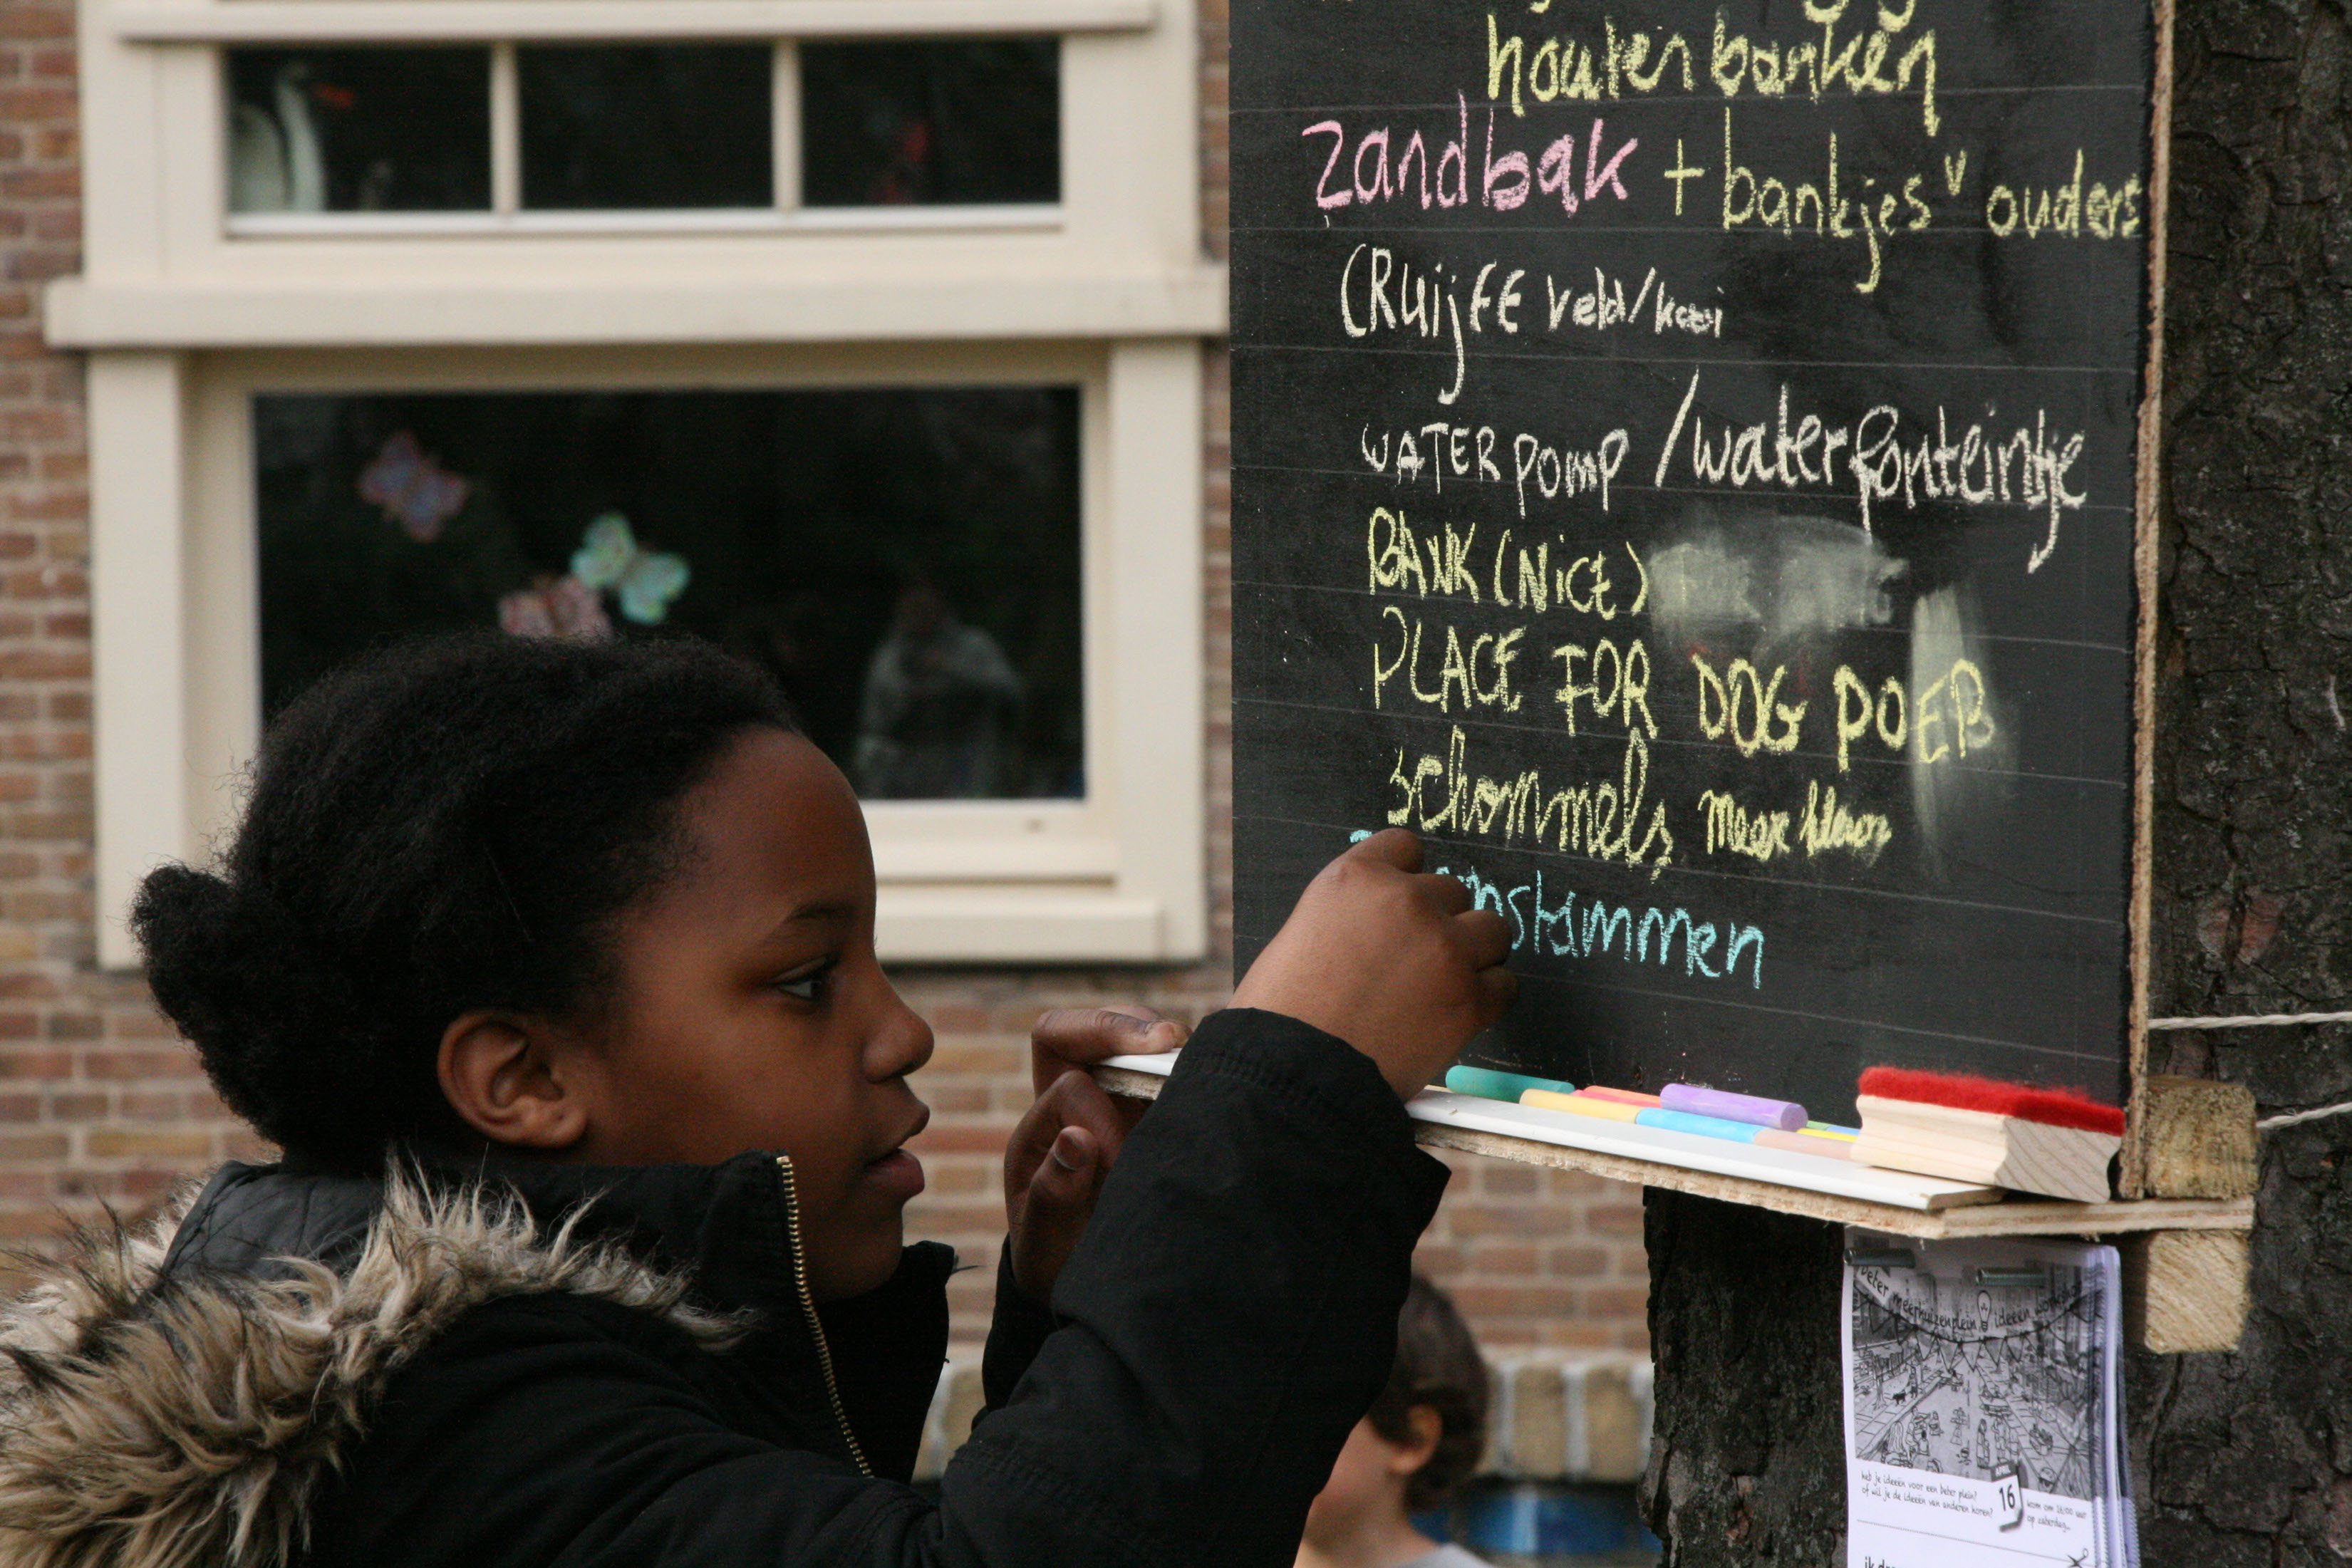 houten banken
zandbak + bankjes v ouders
CRuijFF veld/kooi
WATERPOMP / waterfonteintje
BANK (NicE)
PLACE FOR DOG POEP
schommels meer kleur
stammen
beter meerhuizenplein ideeën
heb je ideeën voor een beter plein?
of wil je de ideeën van anderen horen?
APRIL
16
kom om 16:00 uur
op zaterdag...